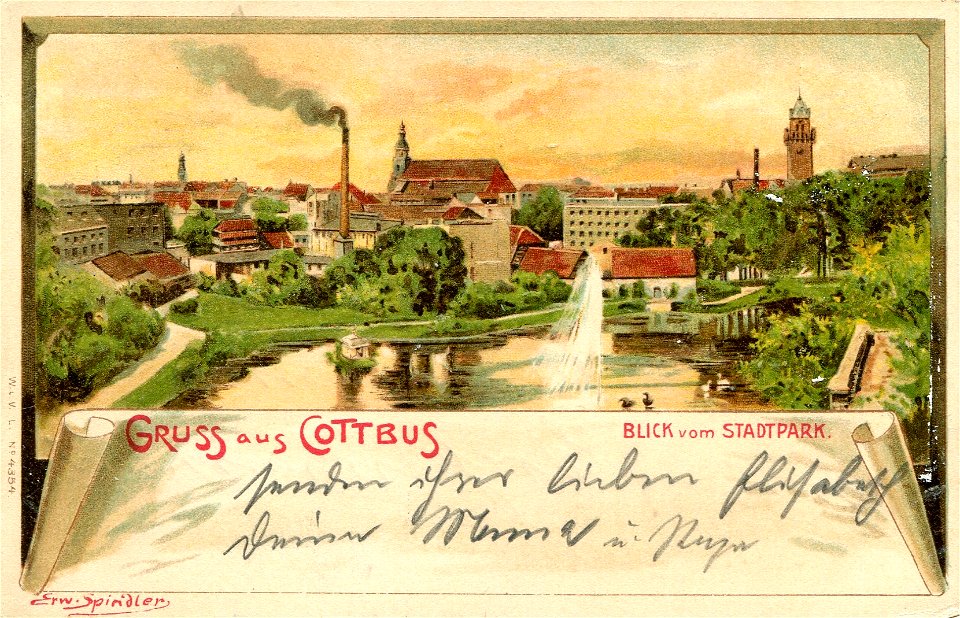 GRUSS aus COTTBUS
BLICK vom STADTPARK.
senden ihrer lieben Elisabeth
Deine Mama u. Papa
Erw. Spindler
W. & V. L. No 4354